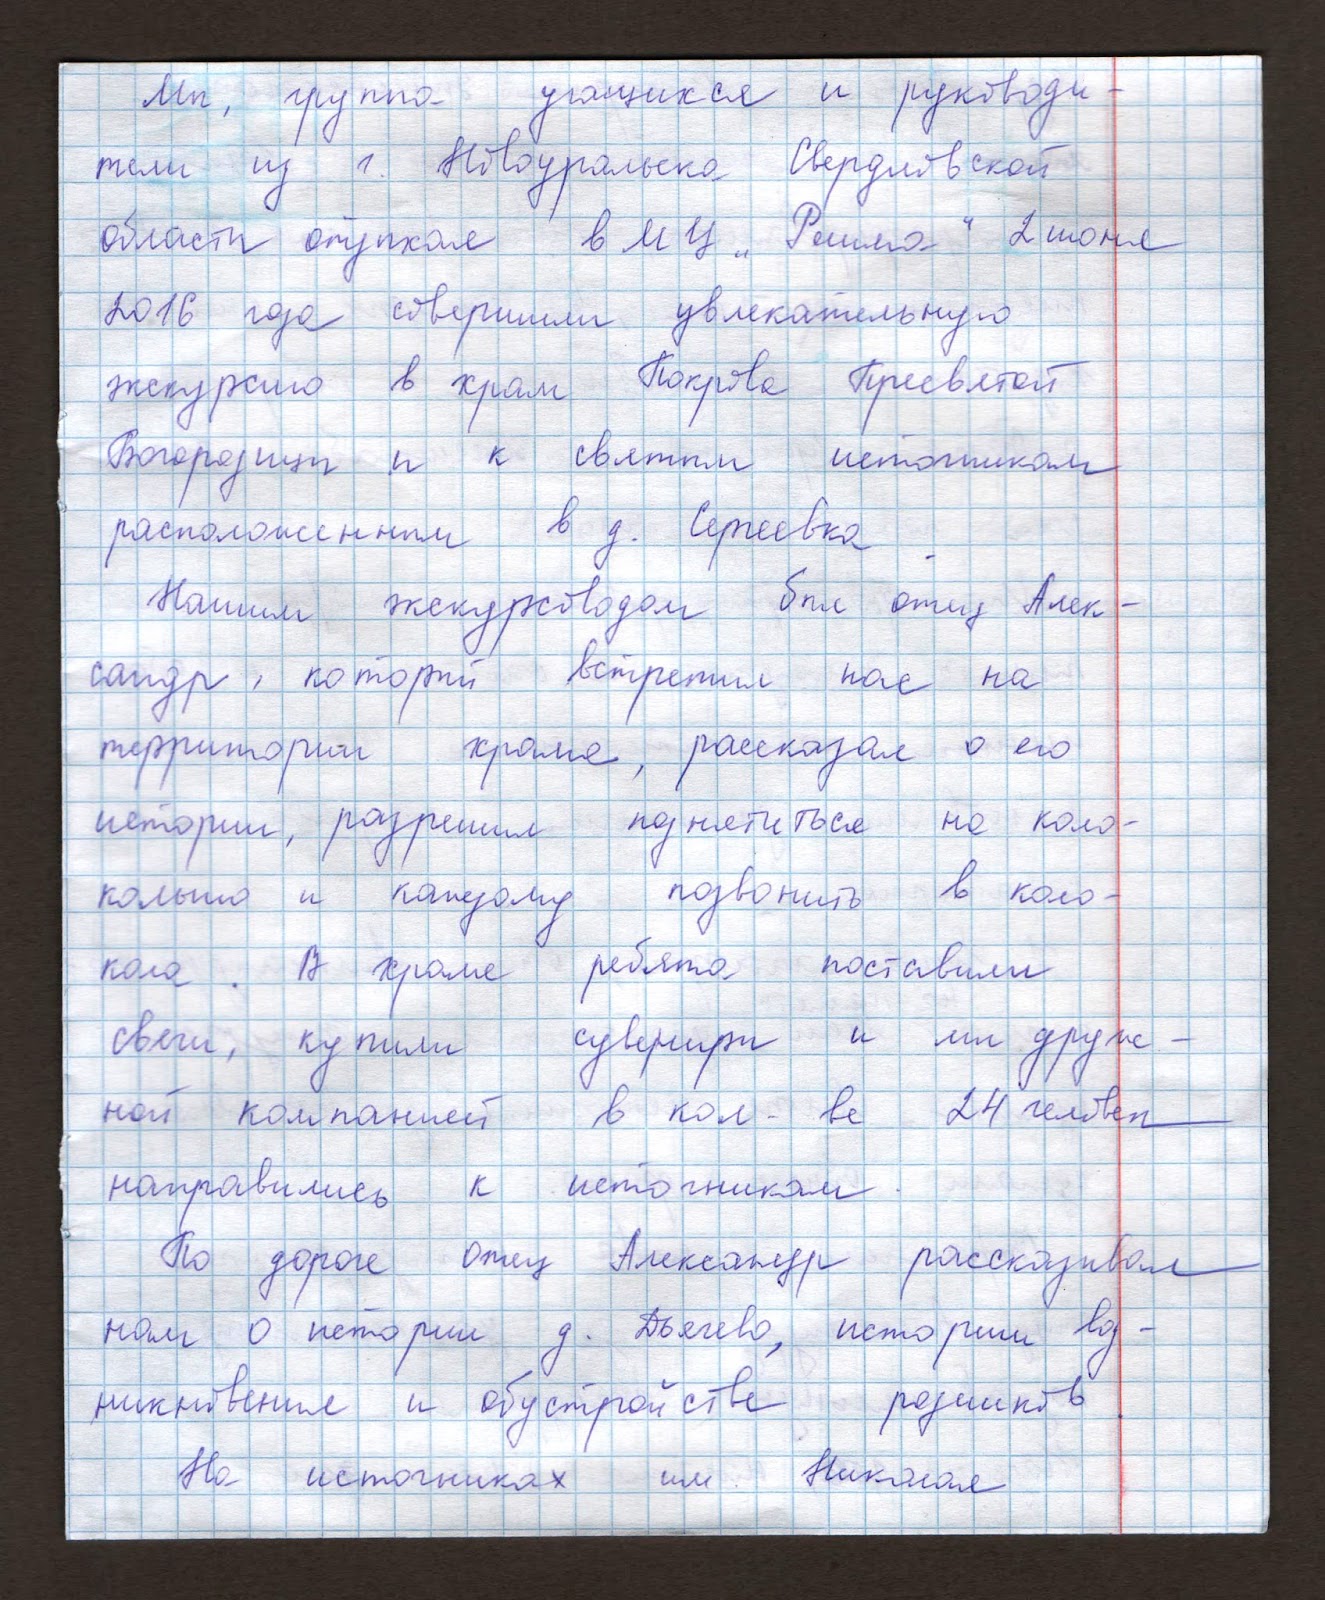 Мы, группа учащихся и руководи-
тели из г. Новоуральска Свердловской
области отдыхая в МЦ „Решма“ 2 июня
2016 года совершили увлекательную
экскурсию в храм Покрова Пресвятой
Богородицы и к святым источникам
расположенным в д. Сергеевка.
Нашим экскурсоводом был отец Алек-
сандр, который встретил нас на
территории храма, рассказал о его
истории, разрешил подняться на коло-
кольню и каждому позвонить в коло-
кола. В храме ребята поставили
свечи, купили сувениры и мы друж-
ной компанией в кол-ве 24 человек
направились к источникам.
По дороге Отец Александр рассказывал
нам о истории д. Дьячево, истории воз-
никновения и обустройстве родников.
На источниках им. Николая